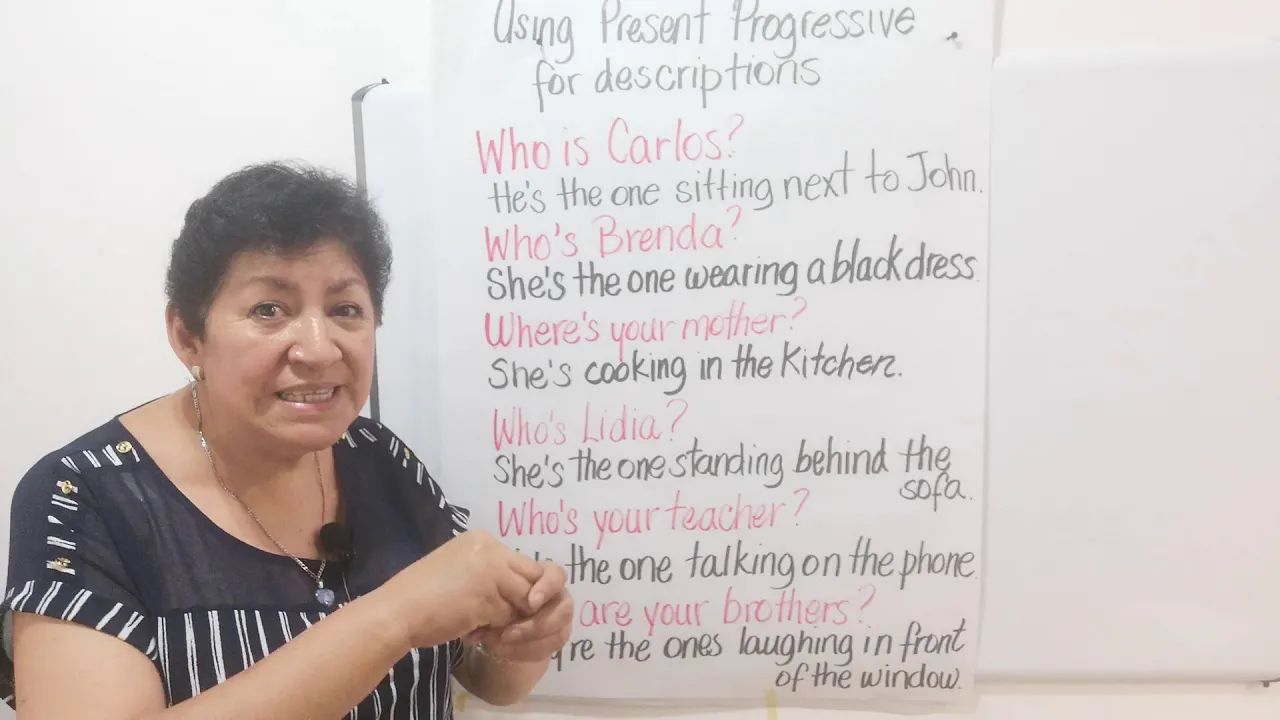 Using Present Progressive
for descriptions
Who is Carlos?
He's the one sitting next to John.
Who's Brenda?
She's the one wearing a black dress.
Where's your mother?
She's cooking in the Kitchen.
Who's Lidia?
She's the one standing behind the
sofa.
Who's your teacher?
the one talking on the phone.
are your brothers?
're the ones laughing in front
of the window.